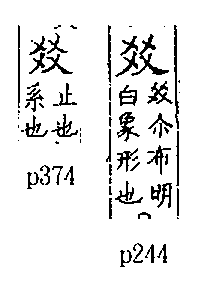 㸚
止也
系也
p374
㸚
㸚尒布明
白象形也
p244